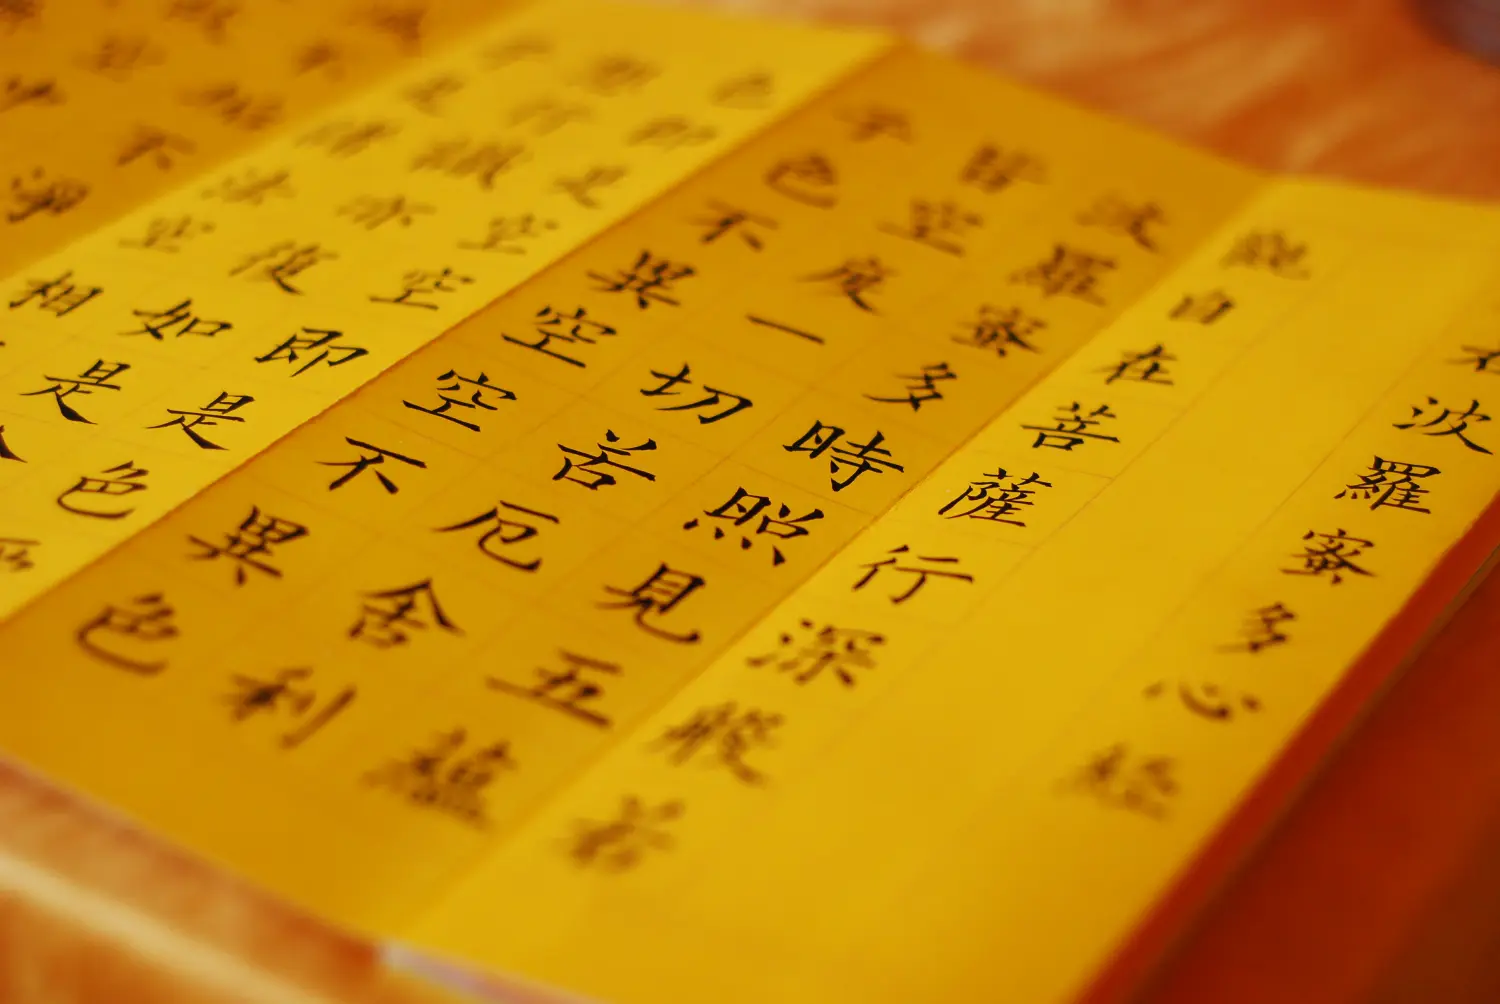 波羅蜜多心經
觀自在菩薩行深般若
波羅蜜多時照見五蘊
皆空度一切苦厄舍利
子色不異空空不異色
色即是空空即是色
想行識亦復如是
子是諸法空相
不垢不淨